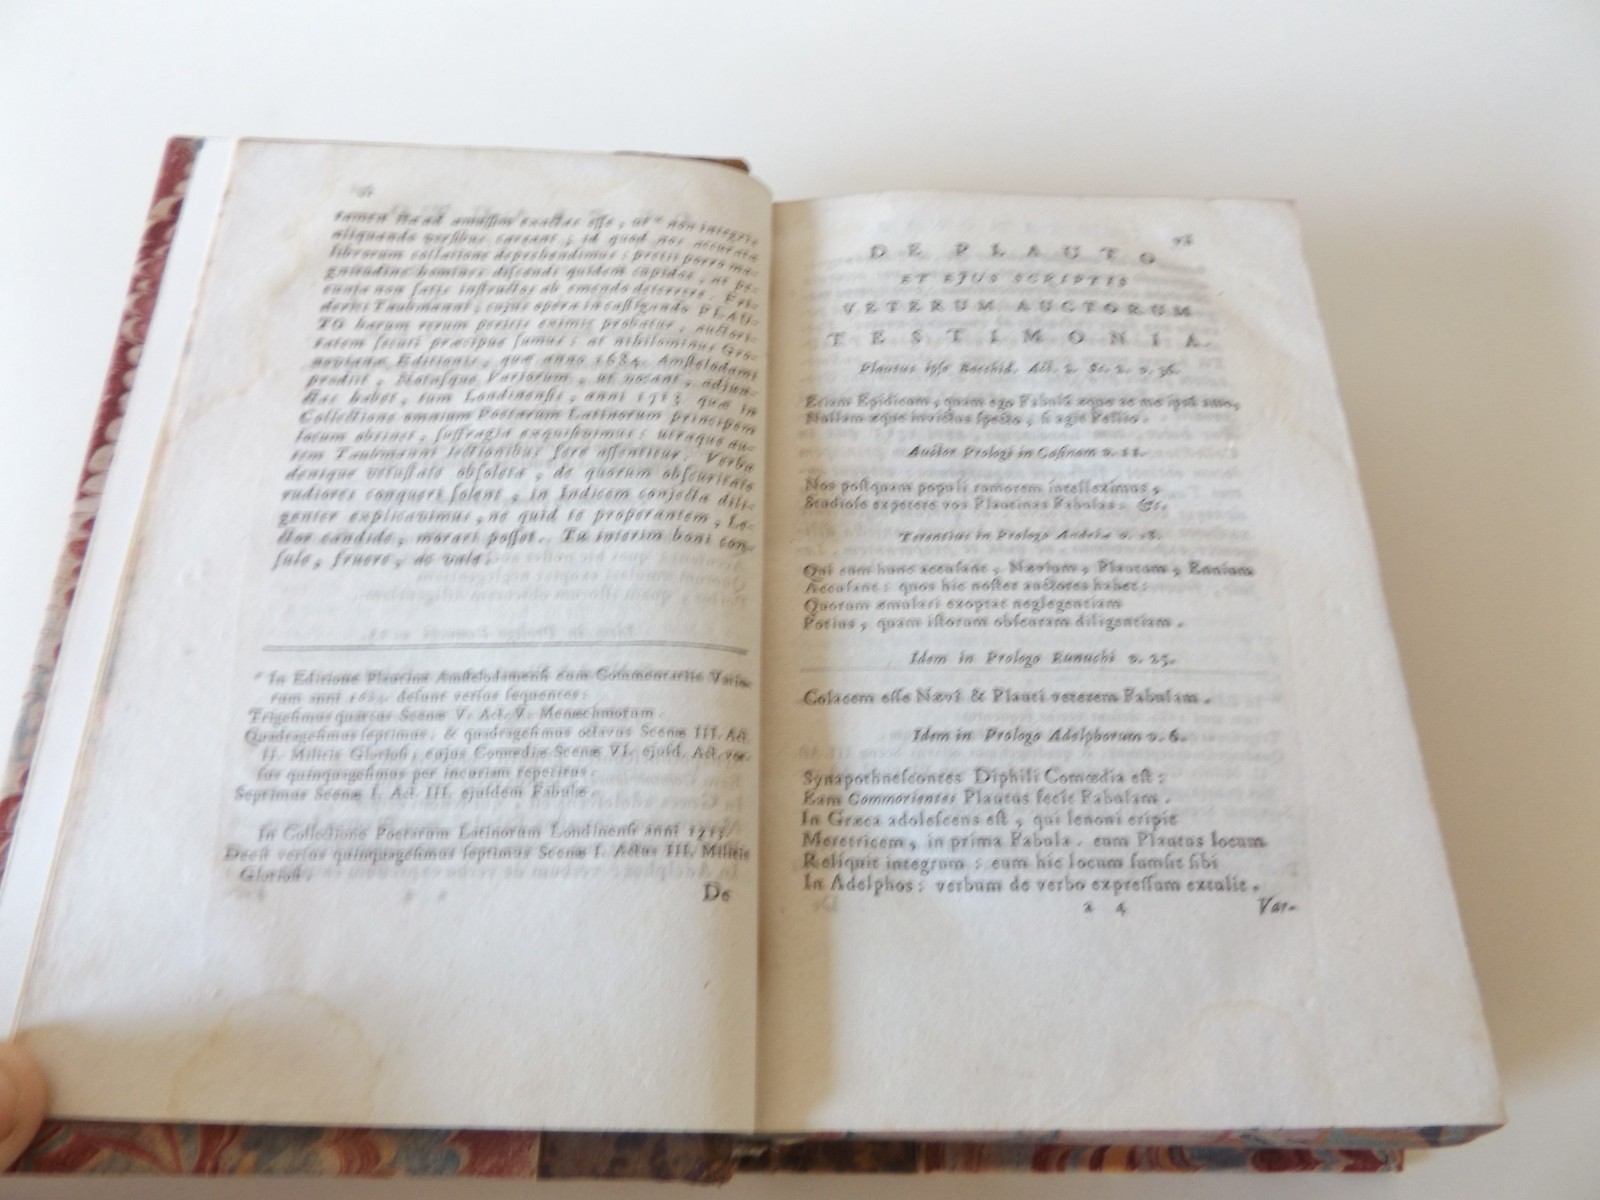 tamen ita ad amussim exactas esse, ut * non integris
aliquando versibus careant; id quod nos accurata
librorum collatione deprehendimus: pretii porro ma-
gnitudine homines discendi quidem cupidos, at pe-
cunia non satis instructos ab emendo deterrere. Fri-
derici Taubmanni, cujus opera in castigando PLAU-
TO harum rerum peritis eximie probatur, auctori-
tatem secuti præcipue sumus: at nihilominus Gro-
novianæ Editionis, quæ anno 1684. Amstelodami
prodiit, Notasque Variorum, ut vocant, adjun-
ctas habet, tum Londinensis, anni 1713. quæ in
Collectione omnium Poetarum Latinorum principem
locum obtinet, suffragia exquisivimus: utraque au-
tem Taubmanni lectionibus fere assentitur. Verba
denique vetustate obsoleta, de quorum obscuritate
rudiores conqueri solent, in Indicem conjecta dili-
genter explicavimus, ne quid te properantem, Le-
ctor candide, morari posset. Tu interim boni con-
sule, fruere, ac vale.
* In Editione Plautina Amstelodamensi cum Commentariis Vario-
rum anni 1684. desunt versus sequentes:
Trigesimus quartus Scenæ V. Act. V. Menæchmorum.
Quadragesimus septimus, & quadragesimus octavus Scenæ III. Act.
II. Militis Gloriosi; cujus Comœdiæ Scenæ VI. ejusd. Act. ver-
sus quinquagesimus per incuriam repetitus.
Septimus Scenæ I. Act. III. ejusdem Fabulæ.
In Collectione Poetarum Latinorum Londinensi anni 1713.
Deest versus quinquagesimus septimus Scenæ I. Actus III. Militis
Gloriosi.
De
DE PLAUTO
ET EJUS SCRIPTIS
VETERUM AUCTORUM
TESTIMONIA.
Plautus ipse Bacchid. Act. 2. Sc. 2. v. 36.
Etiam Epidicum, quam ego Fabulam æque ac me ipsum amo,
Nullam æque invitus specto, si agit Pellio.
Auctor Prologi in Casinam v. 11.
Nos postquam populi rumorem intelleximus,
Studiose expetere vos Plautinas Fabulas. &c.
Terentius in Prologo Andriæ v. 18.
Qui cum hunc accusant, Nævium, Plautum, Ennium
Accusant: quos hic noster auctores habet:
Quorum æmulari exoptat neglegentiam
Potius, quam istorum obscuram diligentiam.
Idem in Prologo Eunuchi v. 25.
Colacem esse Nævi & Plauti veterem Fabulam.
Idem in Prologo Adelphorum v. 6.
Synapothnescontes Diphili Comœdia est:
Eam Commorientes Plautus fecit Fabulam.
In Græca adolescens est, qui lenoni eripit
Meretricem, in prima Fabula. eum Plautus locum
Reliquit integrum: eum hic locum sumsit sibi
In Adelphos: verbum de verbo expressum extulit.
a 4 Var-